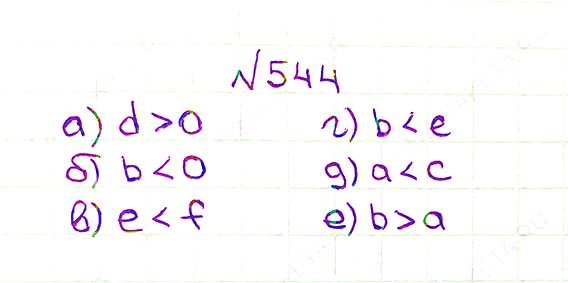 √544
а) d > 0
б) b < 0
в) e < f
г) b < e
д) a < c
е) b > a